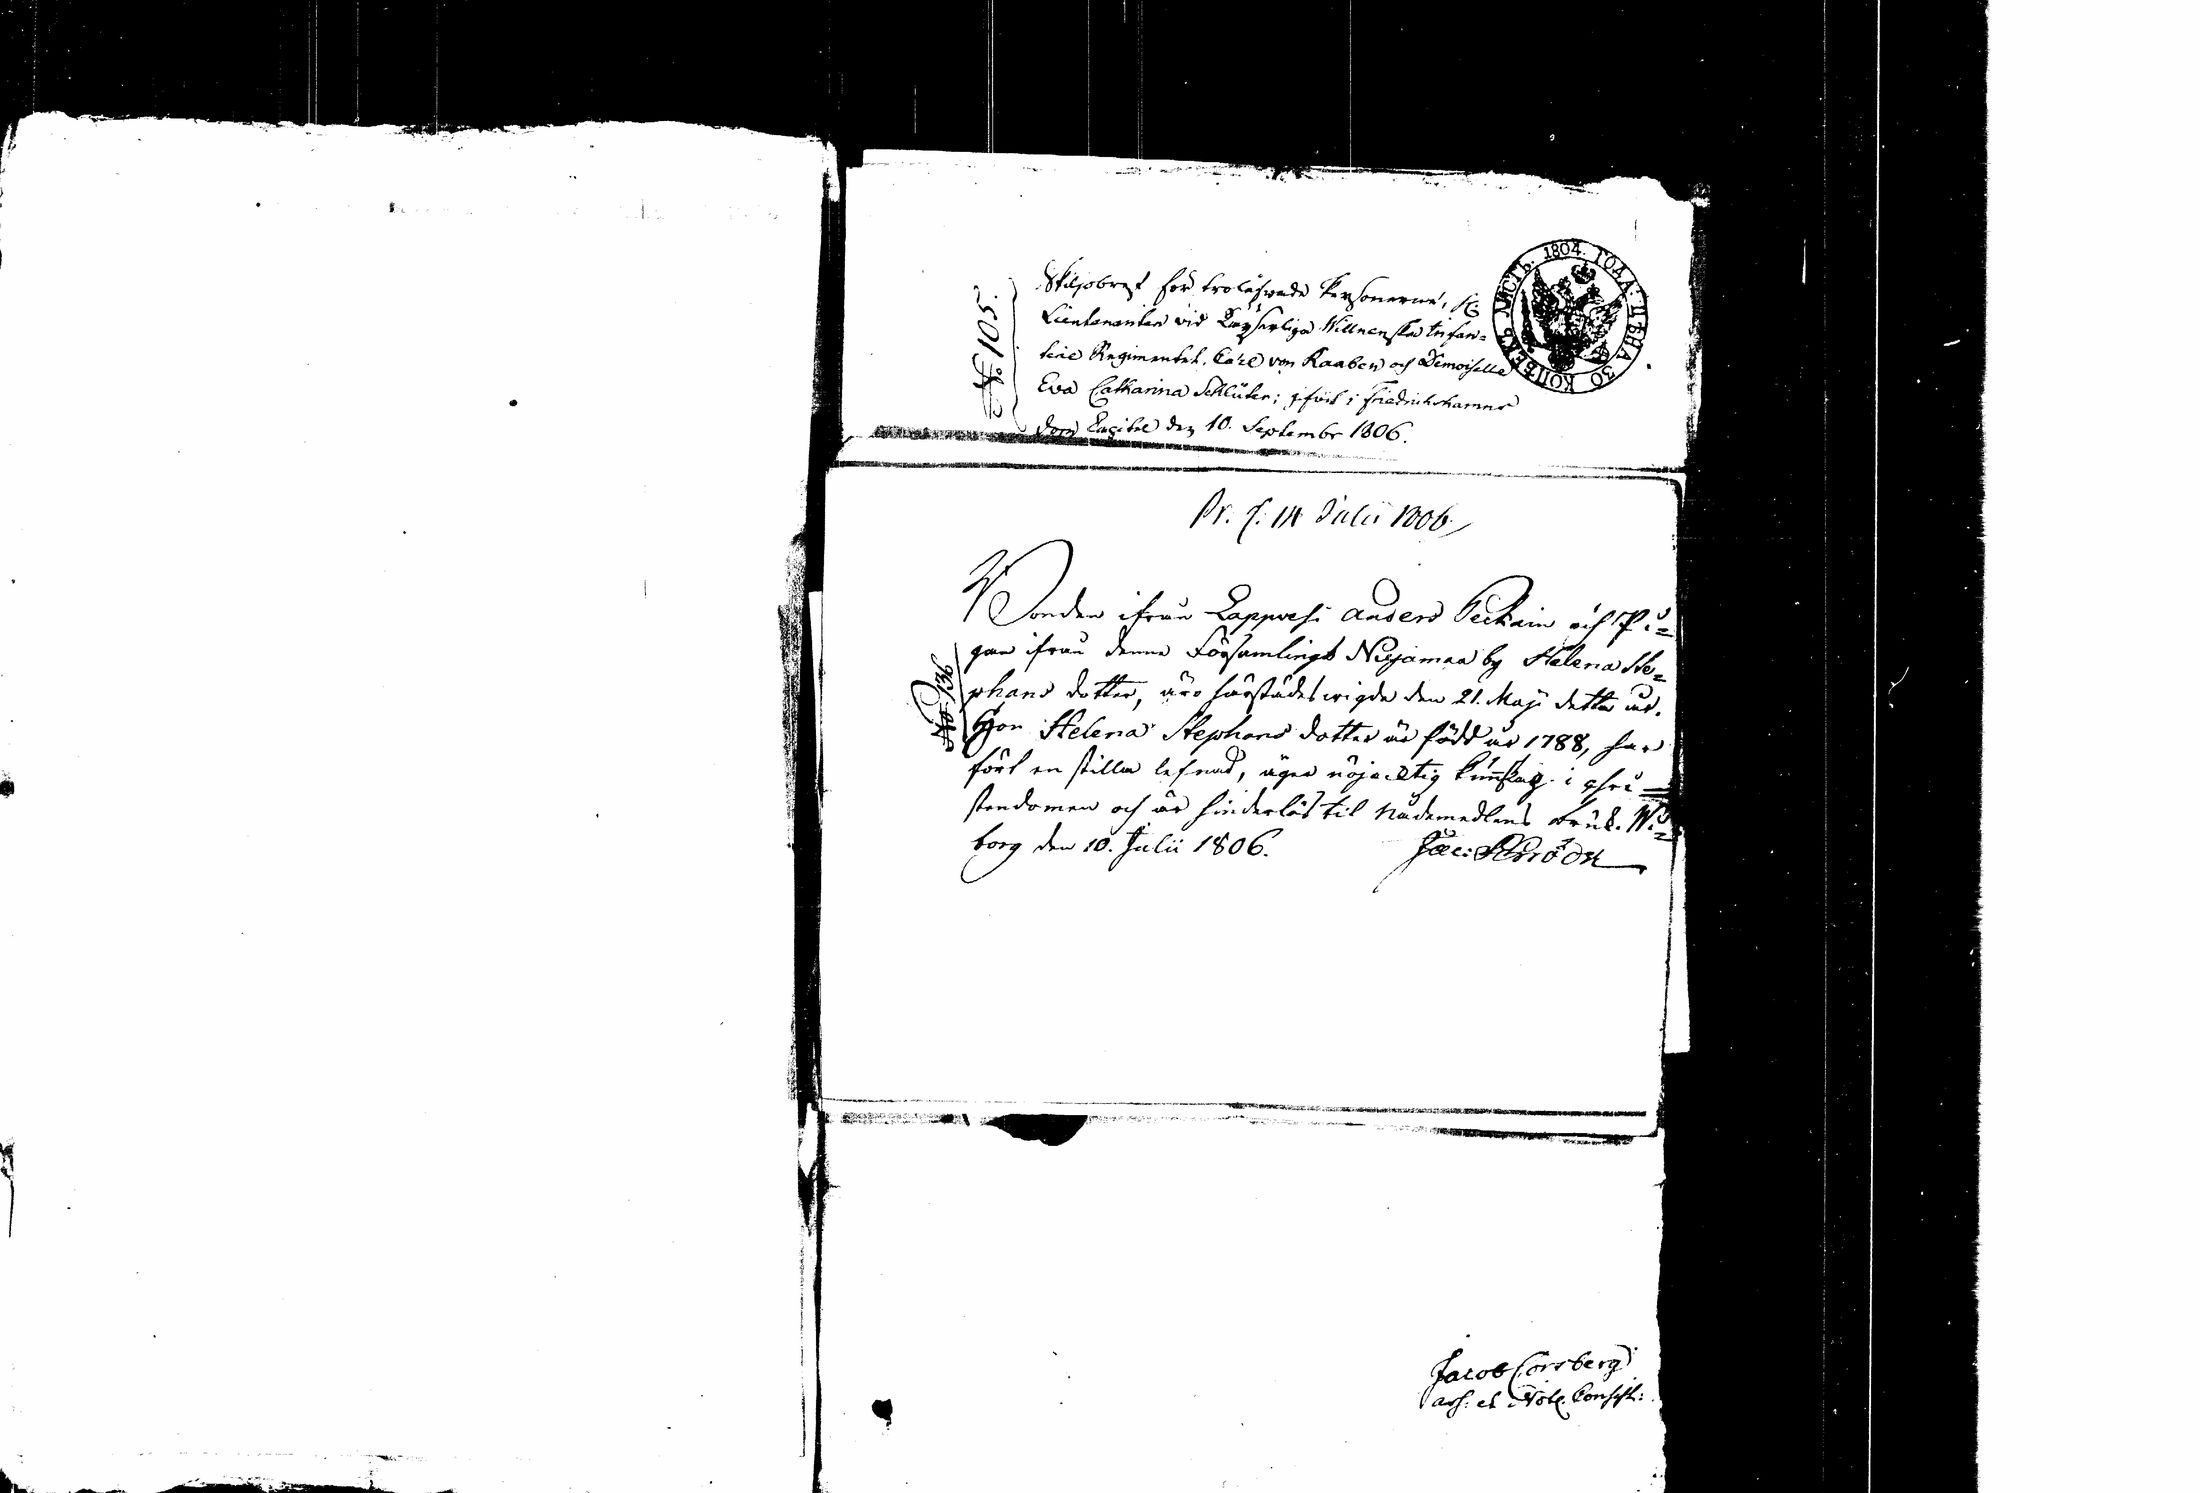 No. 105.
Skiljobref för trolofwade Personerne, H:
Lieutenanten vid Kayserliga Willnenska Infan=
terie Regimentet, Carl von Raaben och Demoiselle
Eva Catharina Schlüter; gifvit i Friedrichshamns
Dom Capitel den 10. Septembr 1806.
ЛИСТЪ. 1804. ГОДА. ЦѢНА 30 КОПѢЕКЪ
Pr. d. 14 Julii 1806
No 136
Bonden ifrån Lappvesi Anders Peckain och Pi=
gan ifrån denna Församlings Nuijamaa by Helena Ste=
phans dotter, äro härstädes wigda den 21. Maji detta år.
Hon Helena Stephans dotter är född år 1788, har
fört en stilla lefnad, äger nöjacktig kunskap i chri=
stendomen och är hinderlös til Nådemedlens bruk. Wi=
borg den 10. Julii 1806.
Jac:
Jacob Forsberg
ass: et Not. Consist: